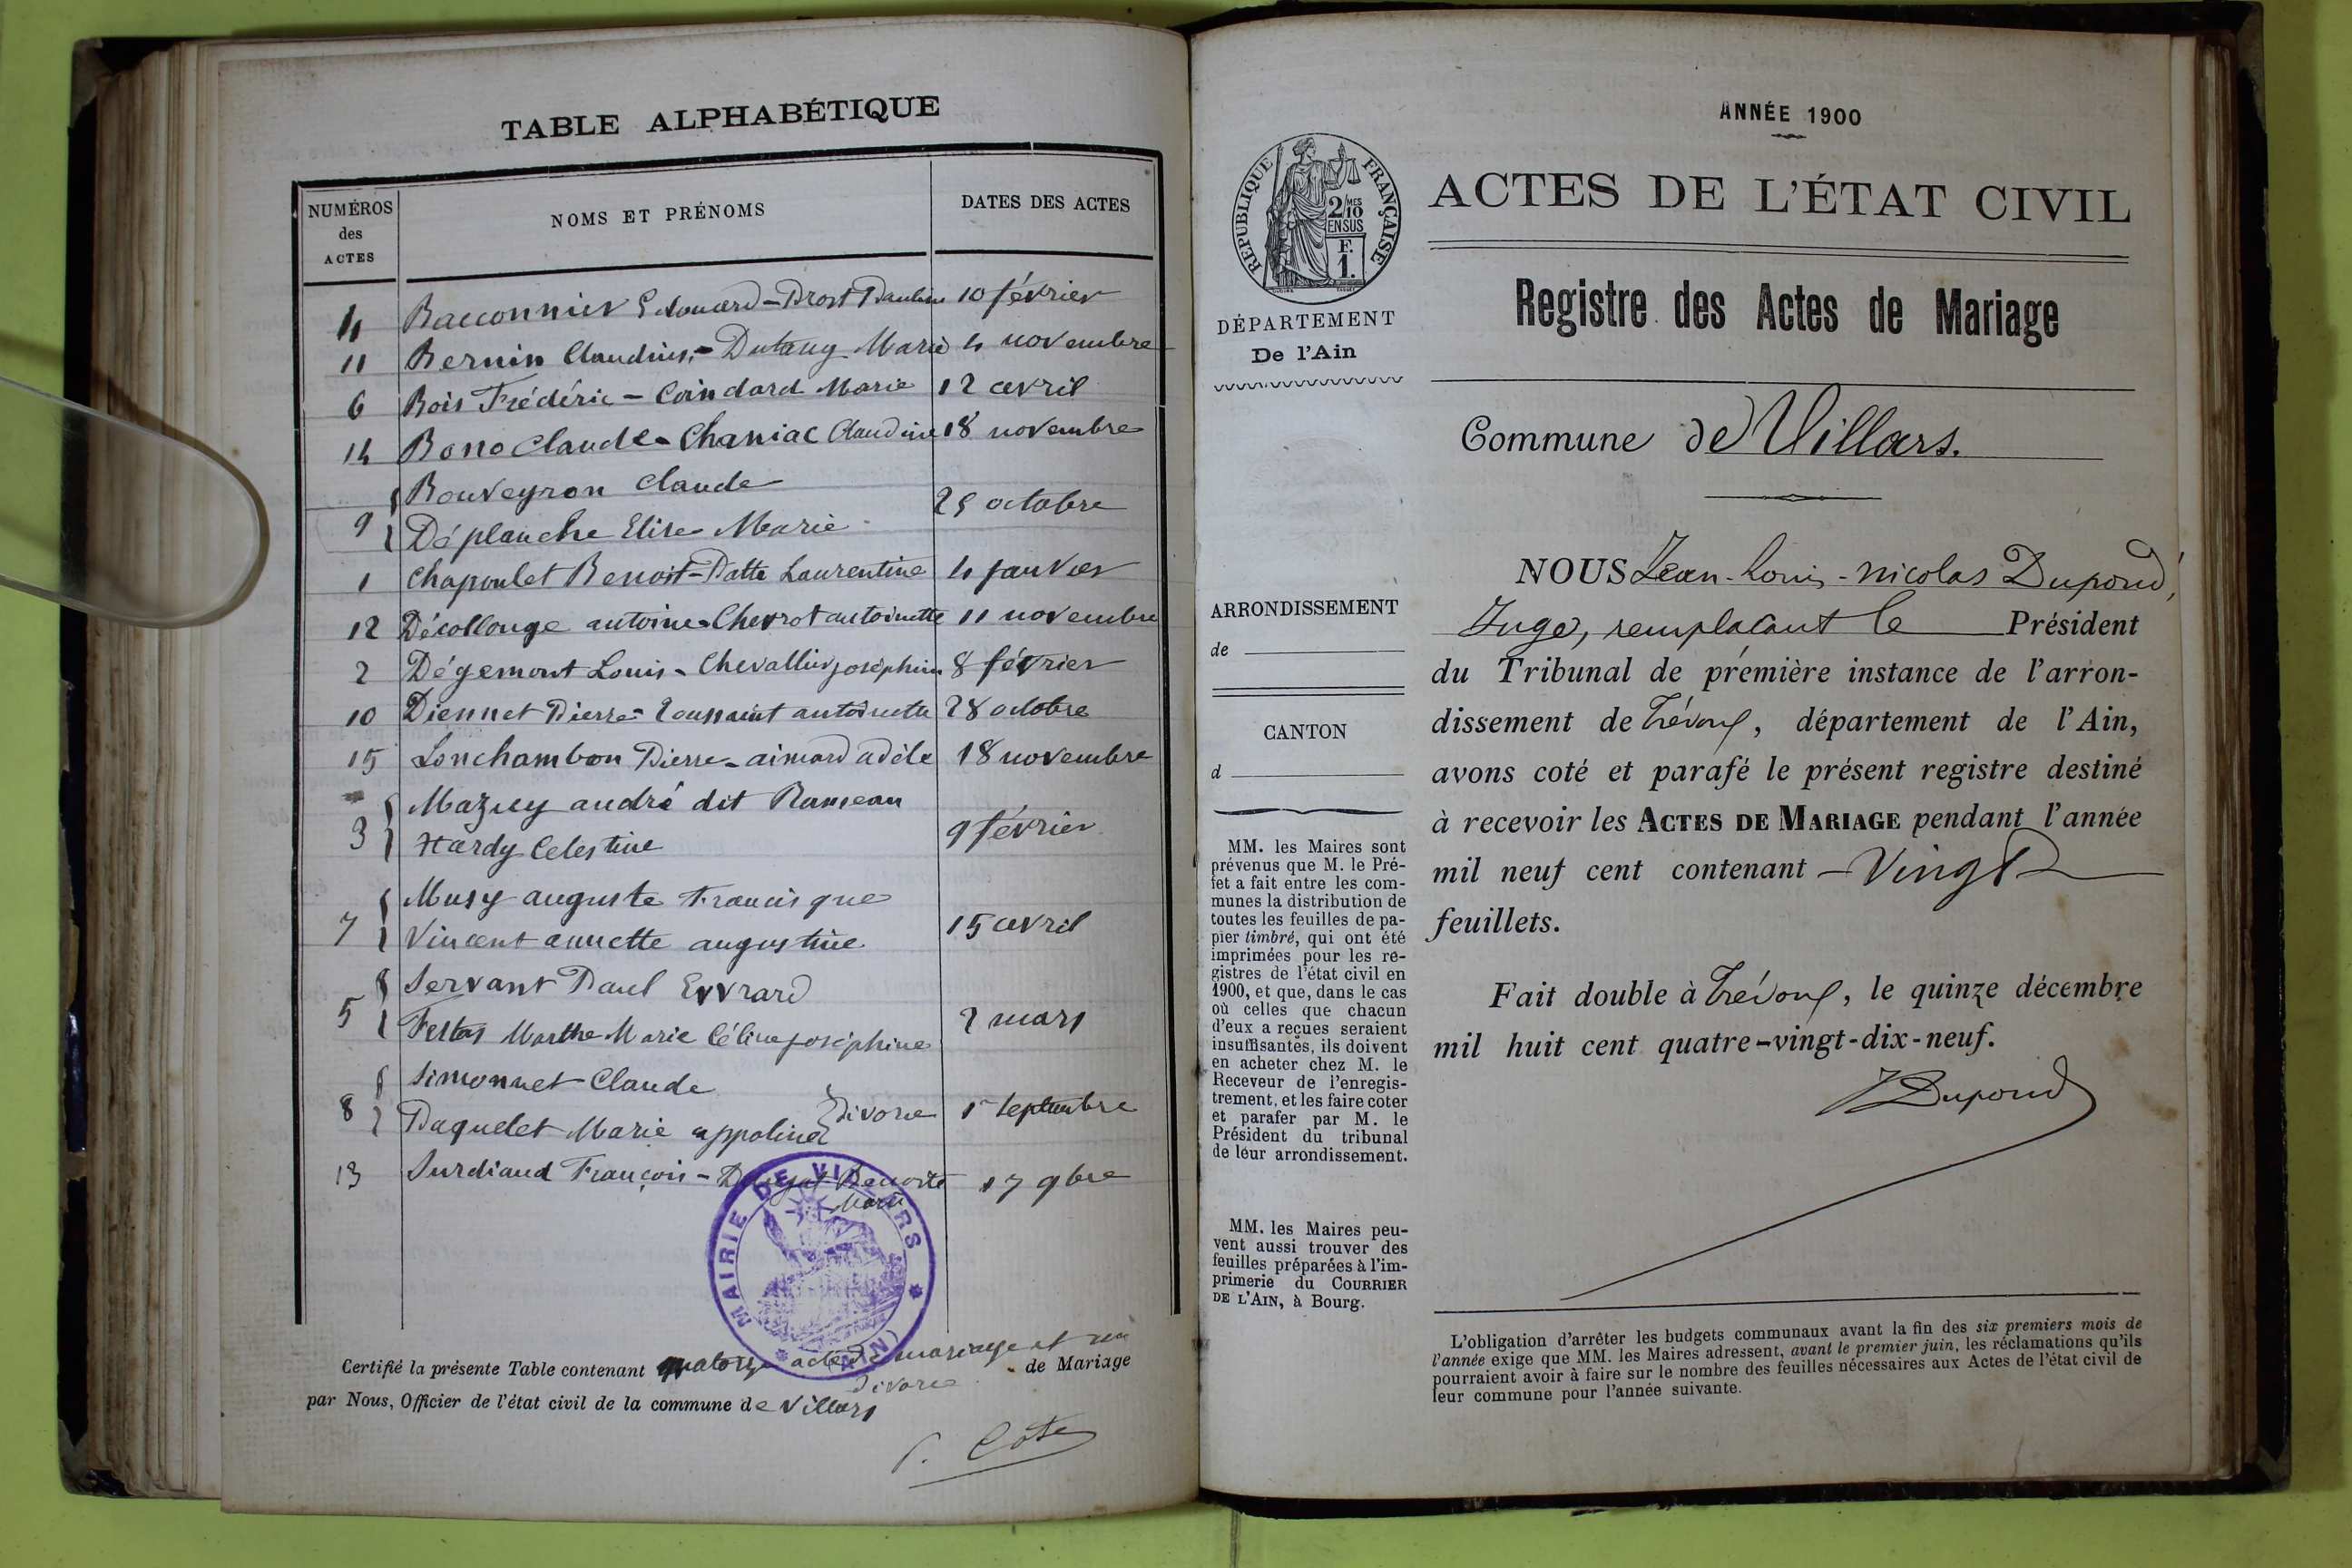 TABLE ALPHABÉTIQUE
NUMÉROS des ACTES
NOMS ET PRÉNOMS
DATES DES ACTES
4 Bacconnier Edouard - Prost Pauline 10 février
11 Bernin Claudius - Dutang Marie 4 novembre
6 Bois Frédéric - Coindard Marie 12 avril
14 Bono Claude - Chaniac Claudine 18 novembre
Bouveyron Claude
9 25 octobre
Déplanche Elise Marie
1 Chapoulet Benoit - Patte Laurentine 4 janvier
12 Décollonge antoine - Chevrot antoinette 11 novembre
2 Dégemont Louis - Chevallier joséphine 8 février
10 Diennet Pierre - Toussaint antoinette 28 octobre
15 Lonchambon Pierre - aimard adèle 18 novembre
Mazuy andré dit Rameau
3 9 février
Hardy Celestine
Musy auguste Francisque
7 15 avril
Vincent annette augustine
Servant Paul Evvrard
5 2 mars
Festas Marthe Marie Céline joséphine
Simonnet Claude
8 divorce 1er septembre
Paquelet Marie appoline
13 Surdiaud François - Benoite 17 9bre
Marie
MAIRIE DE VILLARS
(AIN)
Certifié la présente Table contenant quatorze actes de mariage et un de Mariage
divorce
par Nous, Officier de l'état civil de la commune de Villars
Côte
ANNÉE 1900
RÉPUBLIQUE FRANÇAISE
2/10 MES
EN SUS
F.
1.
DÉPARTEMENT
De l'Ain
ARRONDISSEMENT
de
CANTON
d
MM. les Maires sont
prévenus que M. le Pré-
fet a fait entre les com-
munes la distribution de
toutes les feuilles de pa-
pier timbré, qui ont été
imprimées pour les re-
gistres de l'état civil en
1900, et que, dans le cas
où celles que chacun
d'eux a reçues seraient
insuffisantes, ils doivent
en acheter chez M. le
Receveur de l'enregis-
trement, et les faire coter
et parafer par M. le
Président du tribunal
de leur arrondissement.
MM. les Maires peu-
vent aussi trouver des
feuilles préparées à l'im-
primerie du COURRIER
DE L'AIN, à Bourg.
ACTES DE L'ÉTAT CIVIL
Registre des Actes de Mariage
Commune de Villars.
NOUS Jean-Louis-Nicolas Dupond,
Juge, remplaçant le Président
du Tribunal de première instance de l'arron-
dissement de Trévoux, département de l'Ain,
avons coté et parafé le présent registre destiné
à recevoir les ACTES DE MARIAGE pendant l'année
mil neuf cent contenant - Vingt
feuillets.
Fait double à Trévoux, le quinze décembre
mil huit cent quatre-vingt-dix-neuf.
Dupond
L'obligation d'arrêter les budgets communaux avant la fin des six premiers mois de
l'année exige que MM. les Maires adressent, avant le premier juin, les réclamations qu'ils
pourraient avoir à faire sur le nombre des feuilles nécessaires aux Actes de l'état civil de
leur commune pour l'année suivante.